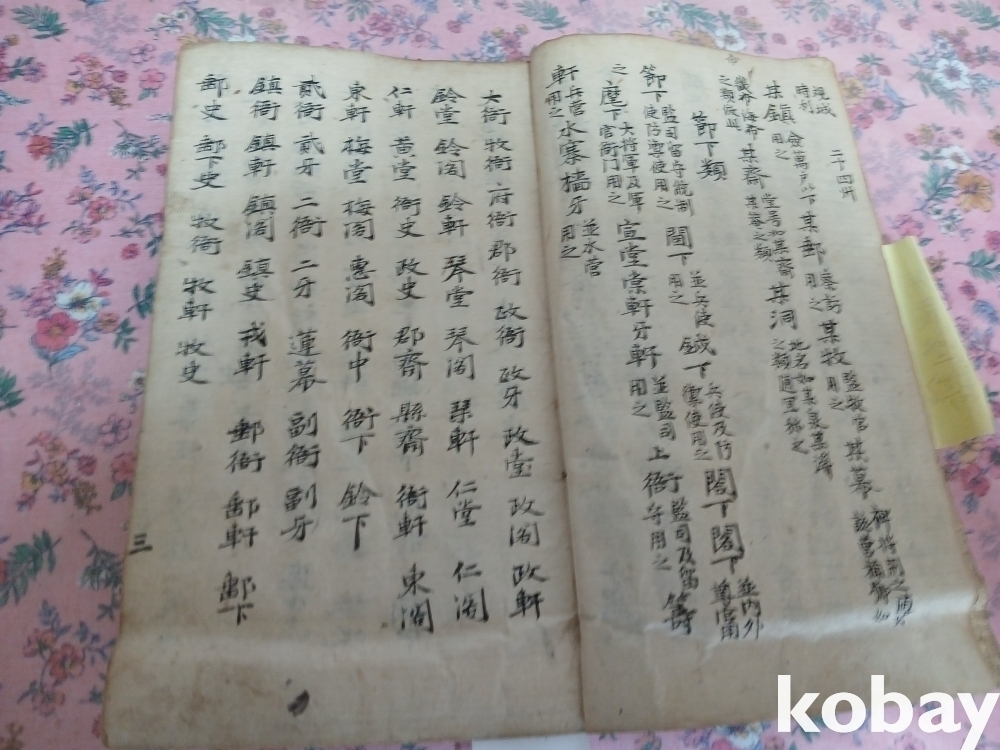 某鎭 僉萬戶以下用之 某郵 察訪用之 某牧 監牧官用之 某幕
某齋 堂号如某齋某菴之類 某洞 地名如某泉某澤之類通里稱之
節下類
節下 監司留守統制使防禦使用之 閤下 並兵使用之 鉞下 兵使及防禦使用之 閤下 閣下 並內外
之 麾下 大將軍及軍官衙門用之 宣堂 棠軒 牙軒 並監司用之 上衙 監司及留守用之 籌
軒 兵營用之 水寨 檣牙 並水營用之
大衙 牧衙 府衙 郡衙 政衙 政牙 政堂 政閣 政軒
鈴堂 鈴閣 鈴軒 琴堂 琴閣 琴軒 仁堂 仁閣
仁軒 黃堂 衙史 政史 郡齋 縣齋 衙軒 東閣
東軒 梅堂 梅閣 惠閣 衙中 衙下 鈴下
貳衙 貳牙 二衙 二牙 蓮幕 副衙 副牙
鎭衙 鎭軒 鎭閣 鎭史 戎軒 郵衙 郵軒 郵下
郵史 郵下史 牧衙 牧軒 牧史
三
kobay